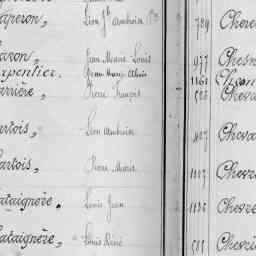 aperon, Léon Jh 789 Chere
aron, Jean Marie Louis 977 Chesn
rpentier, Jean Marie Alexis 1161
arrière, Pierre François Cheva
artois, Léon Ambroise 427 Cheva
artois, Pierre Marie 1117 Chevre
ataignère, Louis Jean 1135 Chevre
ataignère, Louis René 511 Chevri